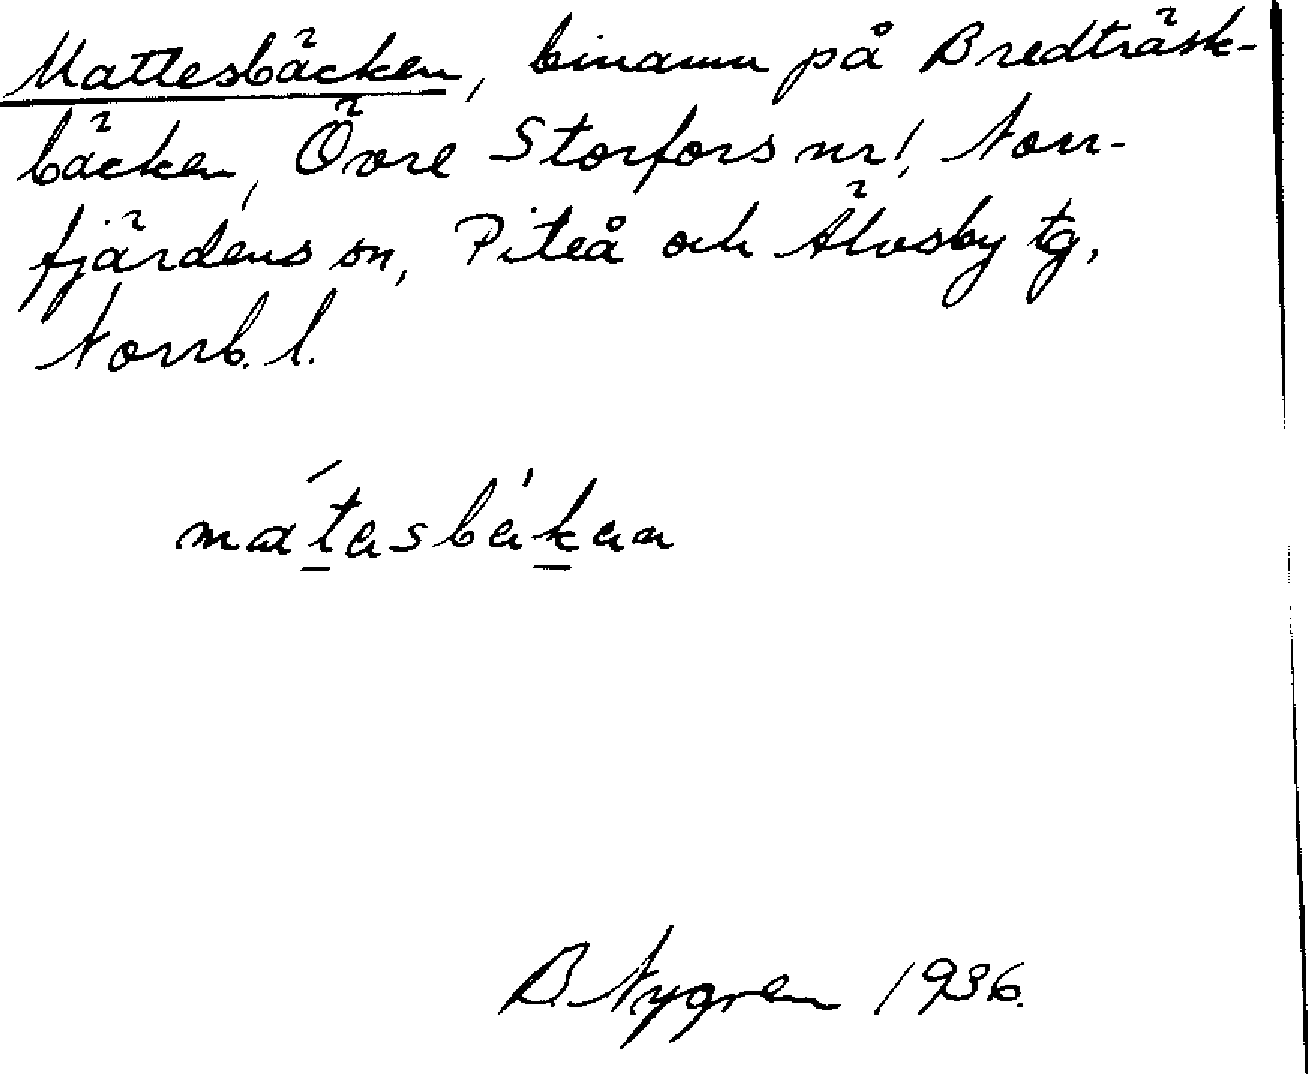 Mattesbäcken, binamn på Bredträsk-
bäcken, Övre Storfors nr 1, Norr-
fjärdens sn, Piteå och Älvsby tg,
Norrb. l.
B. Nygren 1936.